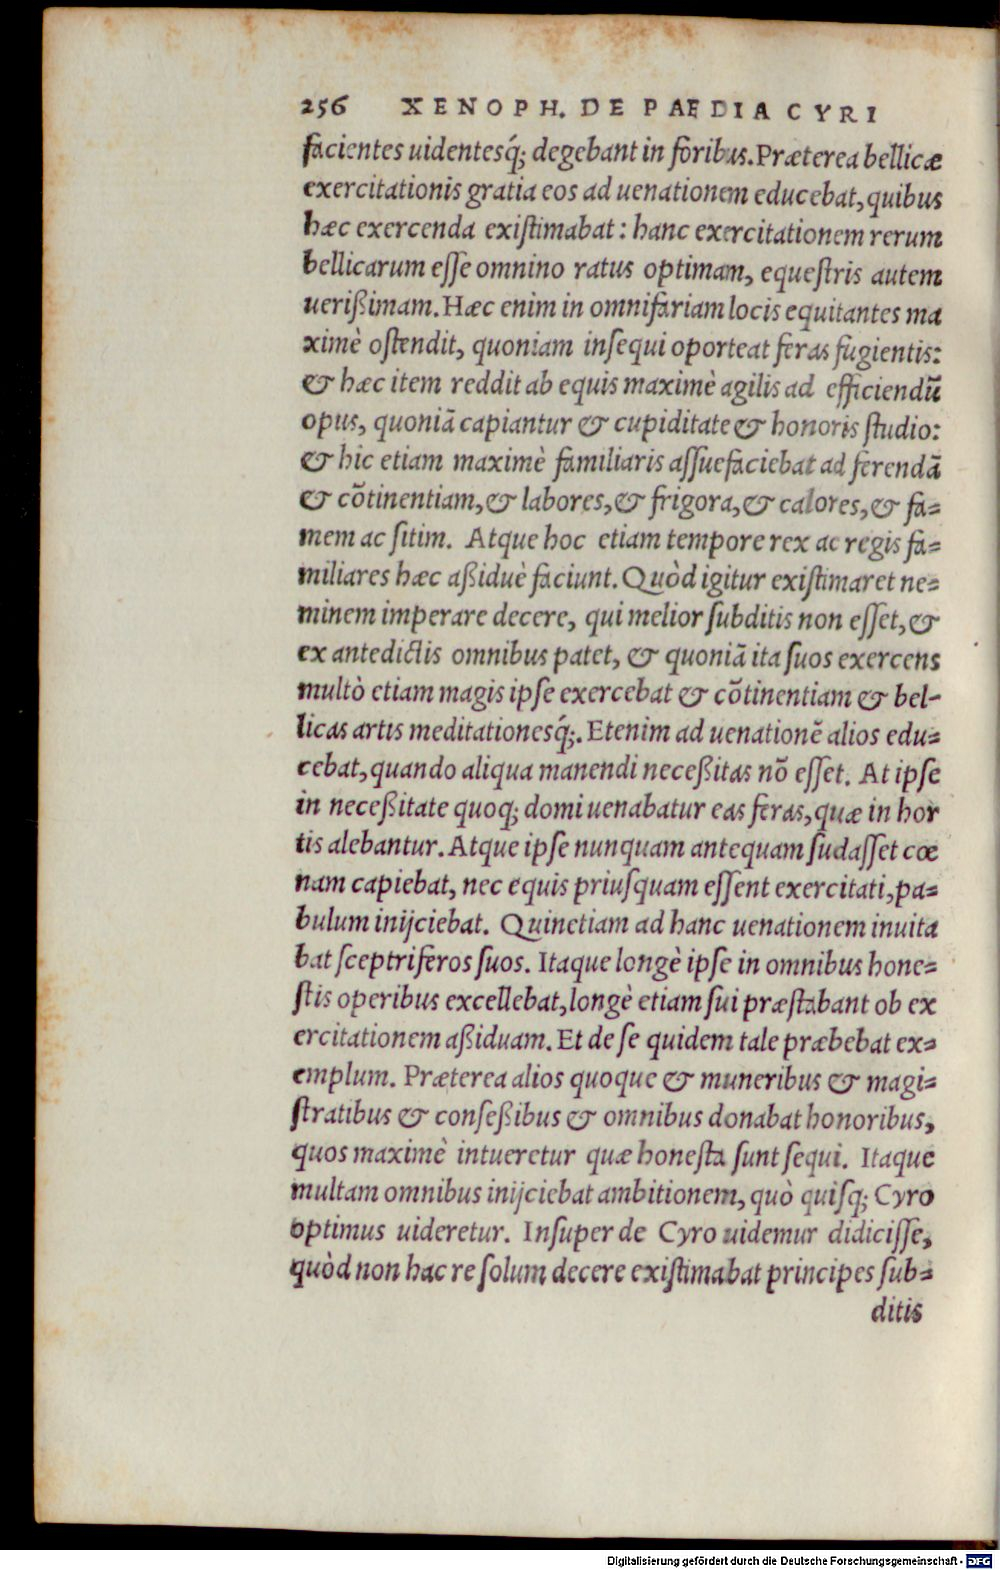 256 XENOPH. DE PAEDIA CYRI
facientes uidentesq́; degebant in foribus. Præterea bellicæ
exercitationis gratia eos ad uenationem educebat, quibus
hæc exercenda existimabat: hanc exercitationem rerum
bellicarum esse omnino ratus optimam, equestris autem
uerißimam. Hæc enim in omnifariam locis equitantes ma
ximè ostendit, quoniam insequi oporteat feras fugientis:
& hæc item reddit ab equis maximè agilis ad efficiendũ
opus, quoniã capiantur & cupiditate & honoris studio:
& hic etiam maximè familiaris assuefaciebat ad ferendã
& cõtinentiam, & labores, & frigora, & calores, & fa=
mem ac sitim. Atque hoc etiam tempore rex ac regis fa=
miliares hæc aßiduè faciunt. Quòd igitur existimaret ne=
minem imperare decere, qui melior subditis non esset, &
ex antedictis omnibus patet, & quoniã ita suos exercens
multò etiam magis ipse exercebat & cõtinentiam & bel-
licas artis meditationesq́;. Etenim ad uenationẽ alios edu=
cebat, quando aliqua manendi neceßitas nõ esset. At ipse
in neceßitate quoq; domi uenabatur eas feras, quæ in hor
tis alebantur. Atque ipse nunquam antequam sudasset cœ
nam capiebat, nec equis priusquam essent exercitati, pa=
bulum inijciebat. Quinetiam ad hanc uenationem inuita
bat sceptriferos suos. Itaque longè ipse in omnibus hone=
stis operibus excellebat, longè etiam sui præstabant ob ex
ercitationem aßiduam. Et de se quidem tale præbebat ex=
emplum. Præterea alios quoque & muneribus & magi=
stratibus & conseßibus & omnibus donabat honoribus,
quos maximè intueretur quæ honesta sunt sequi. Itaque
multam omnibus inijciebat ambitionem, quò quisq; Cyro
optimus uideretur. Insuper de Cyro uidemur didicisse,
quòd non hac re solum decere existimabat principes sub=
ditis
Digitalisierung gefördert durch die Deutsche Forschungsgemeinschaft - DFG